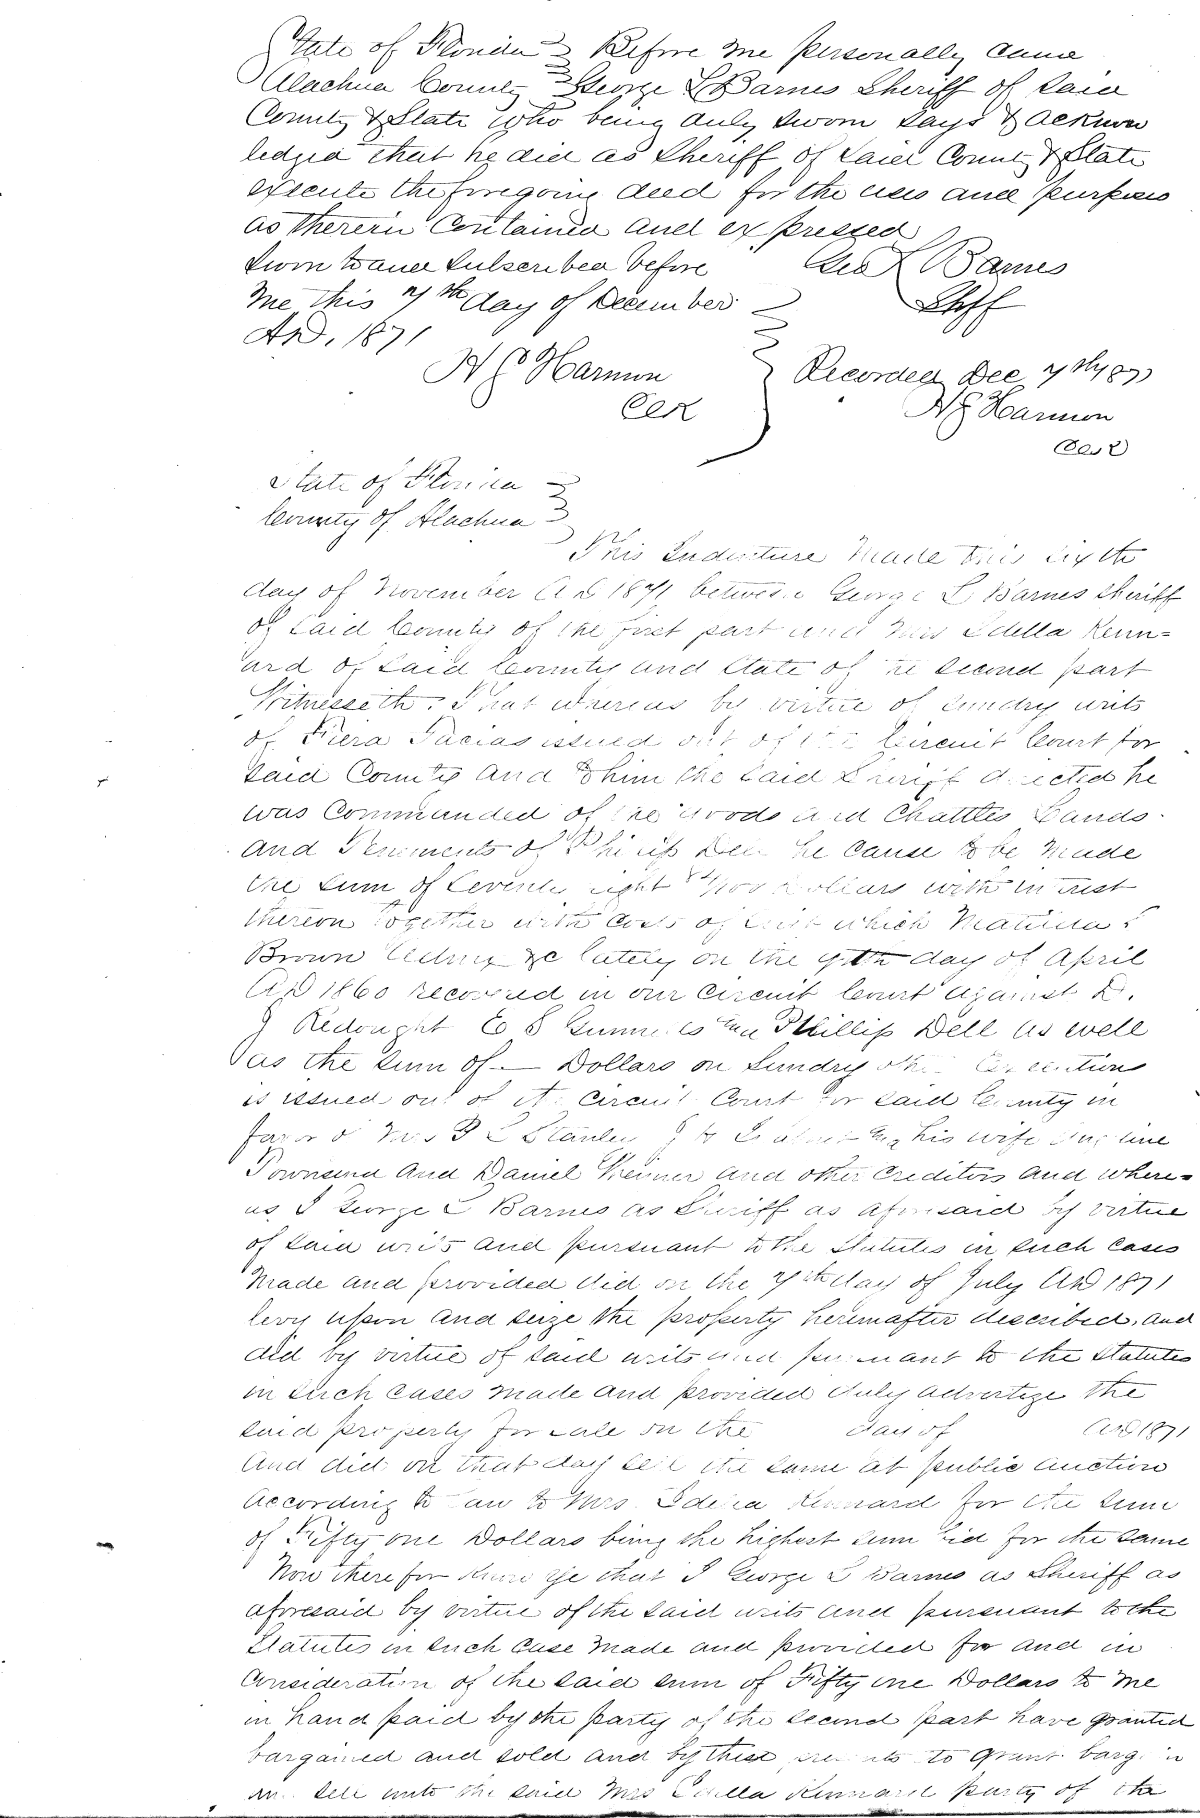 State of Florida Before me personally came
Alachua County George L Barnes Sheriff of Said
County & State who being duly sworn says & acknow
ledged that he did as Sheriff of Said County & State
execute the foregoing deed for the uses and purposes
as therein Contained and expressed
Sworn to and Subscribed before Geo L Barnes
me this 7th day of December Shff
AD, 1871
H G Harmon Recorded Dec 7th 1871
Clk H G Harmon
Clerk
State of Florida
County of Alachua
This Indenture Made this sixth
day of November AD 1871 between George L Barnes Sheriff
of Said County of the first part and Mrs Idella Kenn=
ard of Said County and State of the second part
Witnesseth. That whereas by virtue of sundry writs
of Fiera Facias issued out of the Circuit Court for
Said County and to him the Said Sheriff directed he
was Commanded of the goods and Chattles Lands
and Tenements of Philip Dell he cause to be Made
the sum of Seventy eight Dollars with interest
thereon together with Costs of Suit which Matilda
Brown Admx &c lately on the 9th day of April
AD 1860 recovered in our Circuit Court against D.
J Redought E S and Phillip Dell as well
as the sum of — Dollars on Sundry other Execution
is issued out of the Circuit Court for Said County in
favor of Mrs Stanley his wife
Townsend and Daniel and other Creditors and where=
as I George L Barnes as Sheriff as aforesaid by virtue
of said writs and pursuant to the Statutes in such cases
Made and provided did on the 7th day of July AD 1871
levy upon and seize the property hereinafter described, and
did by virtue of said writs and pursuant to the Statutes
in such cases made and provided duly advertize the
said property for sale on the day of AD 1871
and did on that day sell the same at public auction
According to law to Mrs. Idella Kennard for the sum
of Fifty one Dollars being the highest sum bid for the same
Now therefor know ye that I George L Barnes as Sheriff as
aforesaid by virtue of the said writs and pursuant to the
Statutes in such case Made and provided for and in
Consideration of the said sum of Fifty one Dollars to me
in hand paid by the party of the second part have granted
bargained and sold and by these presents to grant bargain
and sell unto the said Mrs Idella Kennard party of the